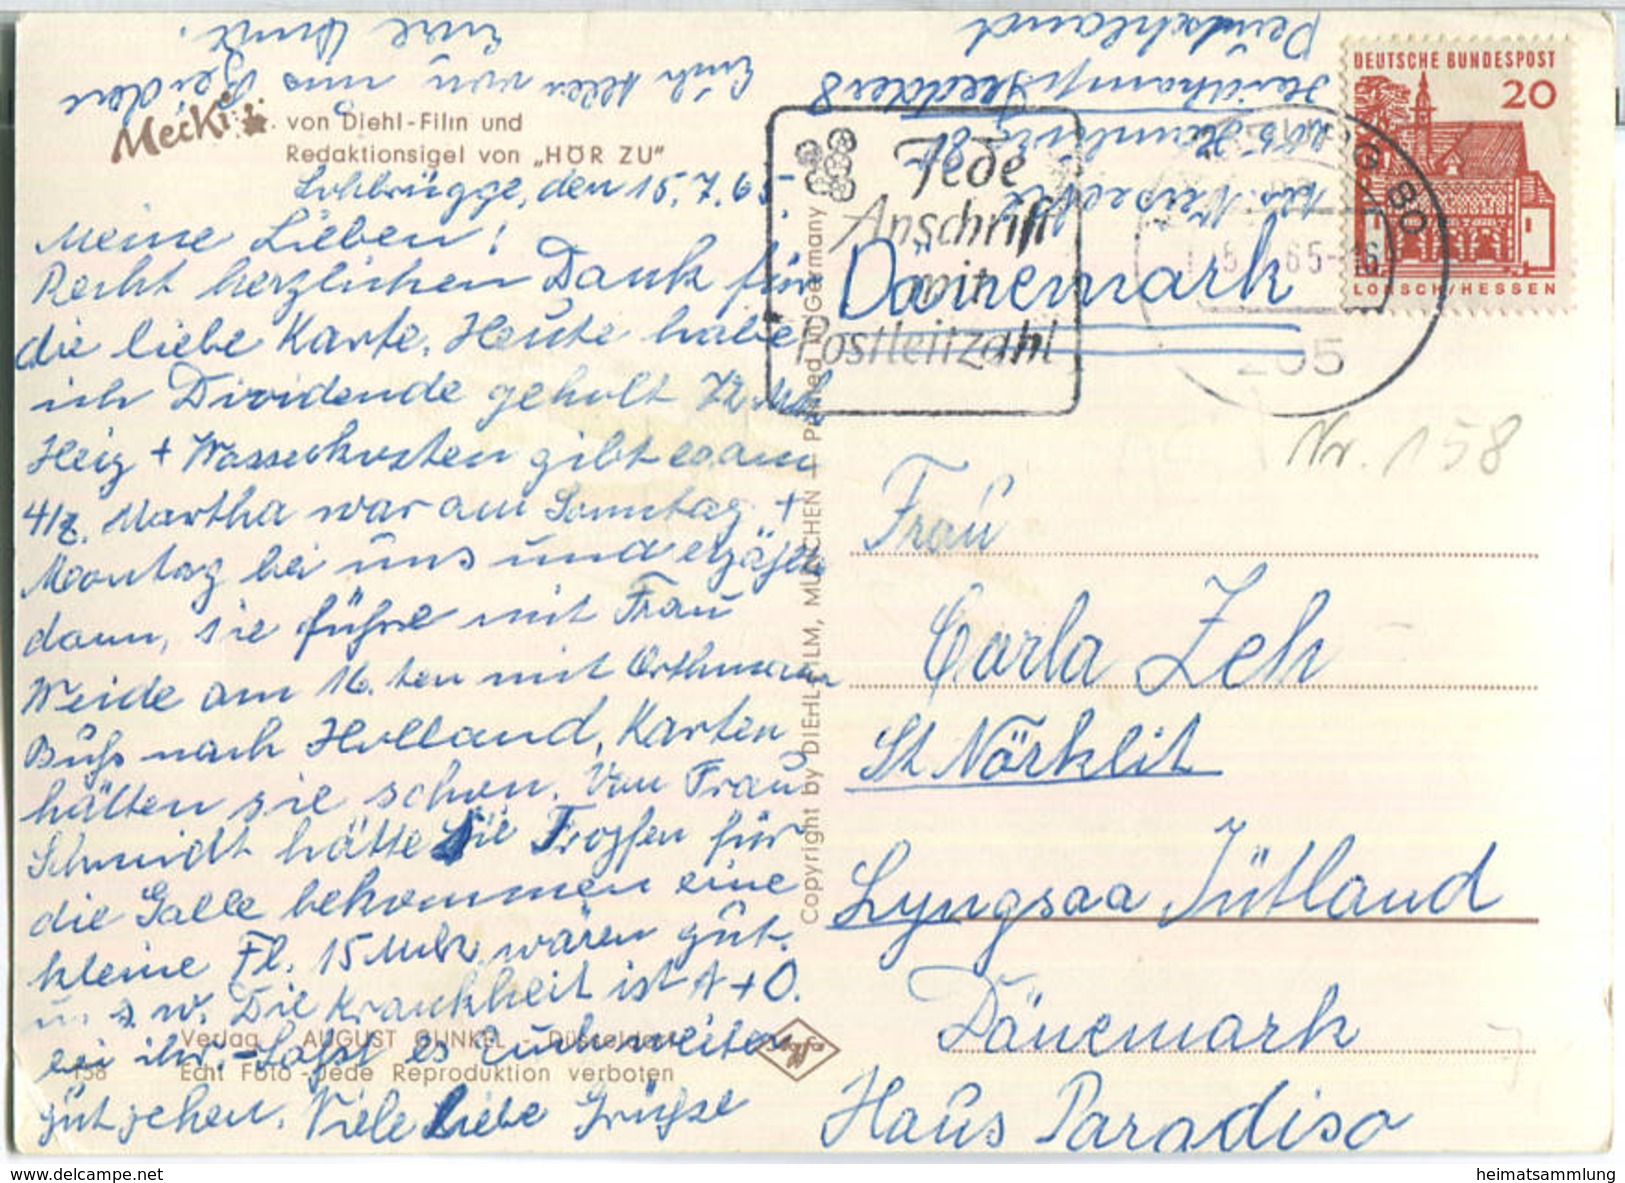 Mecki
von Diehl-Film und
Redaktionsigel von „HÖR ZU"
Lohbrügge, den 15.7.65.
Meine Lieben!
Recht herzlichen Dank für
die liebe Karte. Heute habe
ich Dividende geholt 72 Mk
Heiz + Wasserkosten gibt es am
Martha war am Sonntag +
Montag bei uns und erzählte
dann, sie führe mit Frau
Weide am 16.ten mit Orthmann
Buß nach Holland, Karten
hätten sie schon. Von Frau
Schmidt hätte sie Tropfen für
die Galle bekommen eine
kleine Fl. 15 Mk. wären gut.
u. s. w. Die Krankheit ist A + O.
bei ihr. - Lasst es Euch weiter
gut gehen. Viele liebe Grüße
Euch allen von uns Beiden
Eure
Verlag AUGUST GUNKEL - Düsseldorf
158 Echt Foto - Jede Reproduktion verboten
Agfa
Copyright by DIEHL-FILM, MÜNCHEN — Printed in Germany
205 Hamburg 80
Deutschland
Jede
Anschrift
mit
Postleitzahl
80
205
DEUTSCHE BUNDESPOST
20
LORSCH/HESSEN
Dänemark
Nr. 158
Frau
Carla Zeh
St Nörklit
Lyngsaa Jütland
Dänemark
Haus Paradiso
heimatsammlung
www.delcampe.net